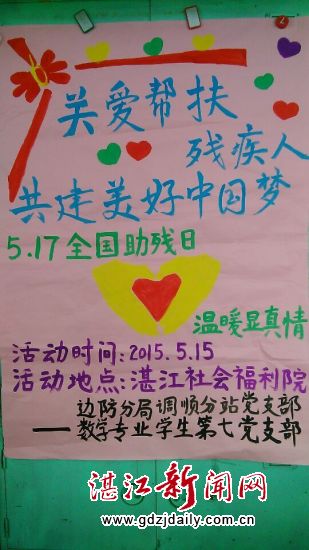 关爱帮扶
残疾人
共建美好中国梦
5.17全国助残日
温暖显真情
活动时间:2015.5.15
活动地点:湛江社会福利院
边防分局调顺分站党支部
——数学专业学生第七党支部
湛江新闻网
www.gdzjdaily.com.cn